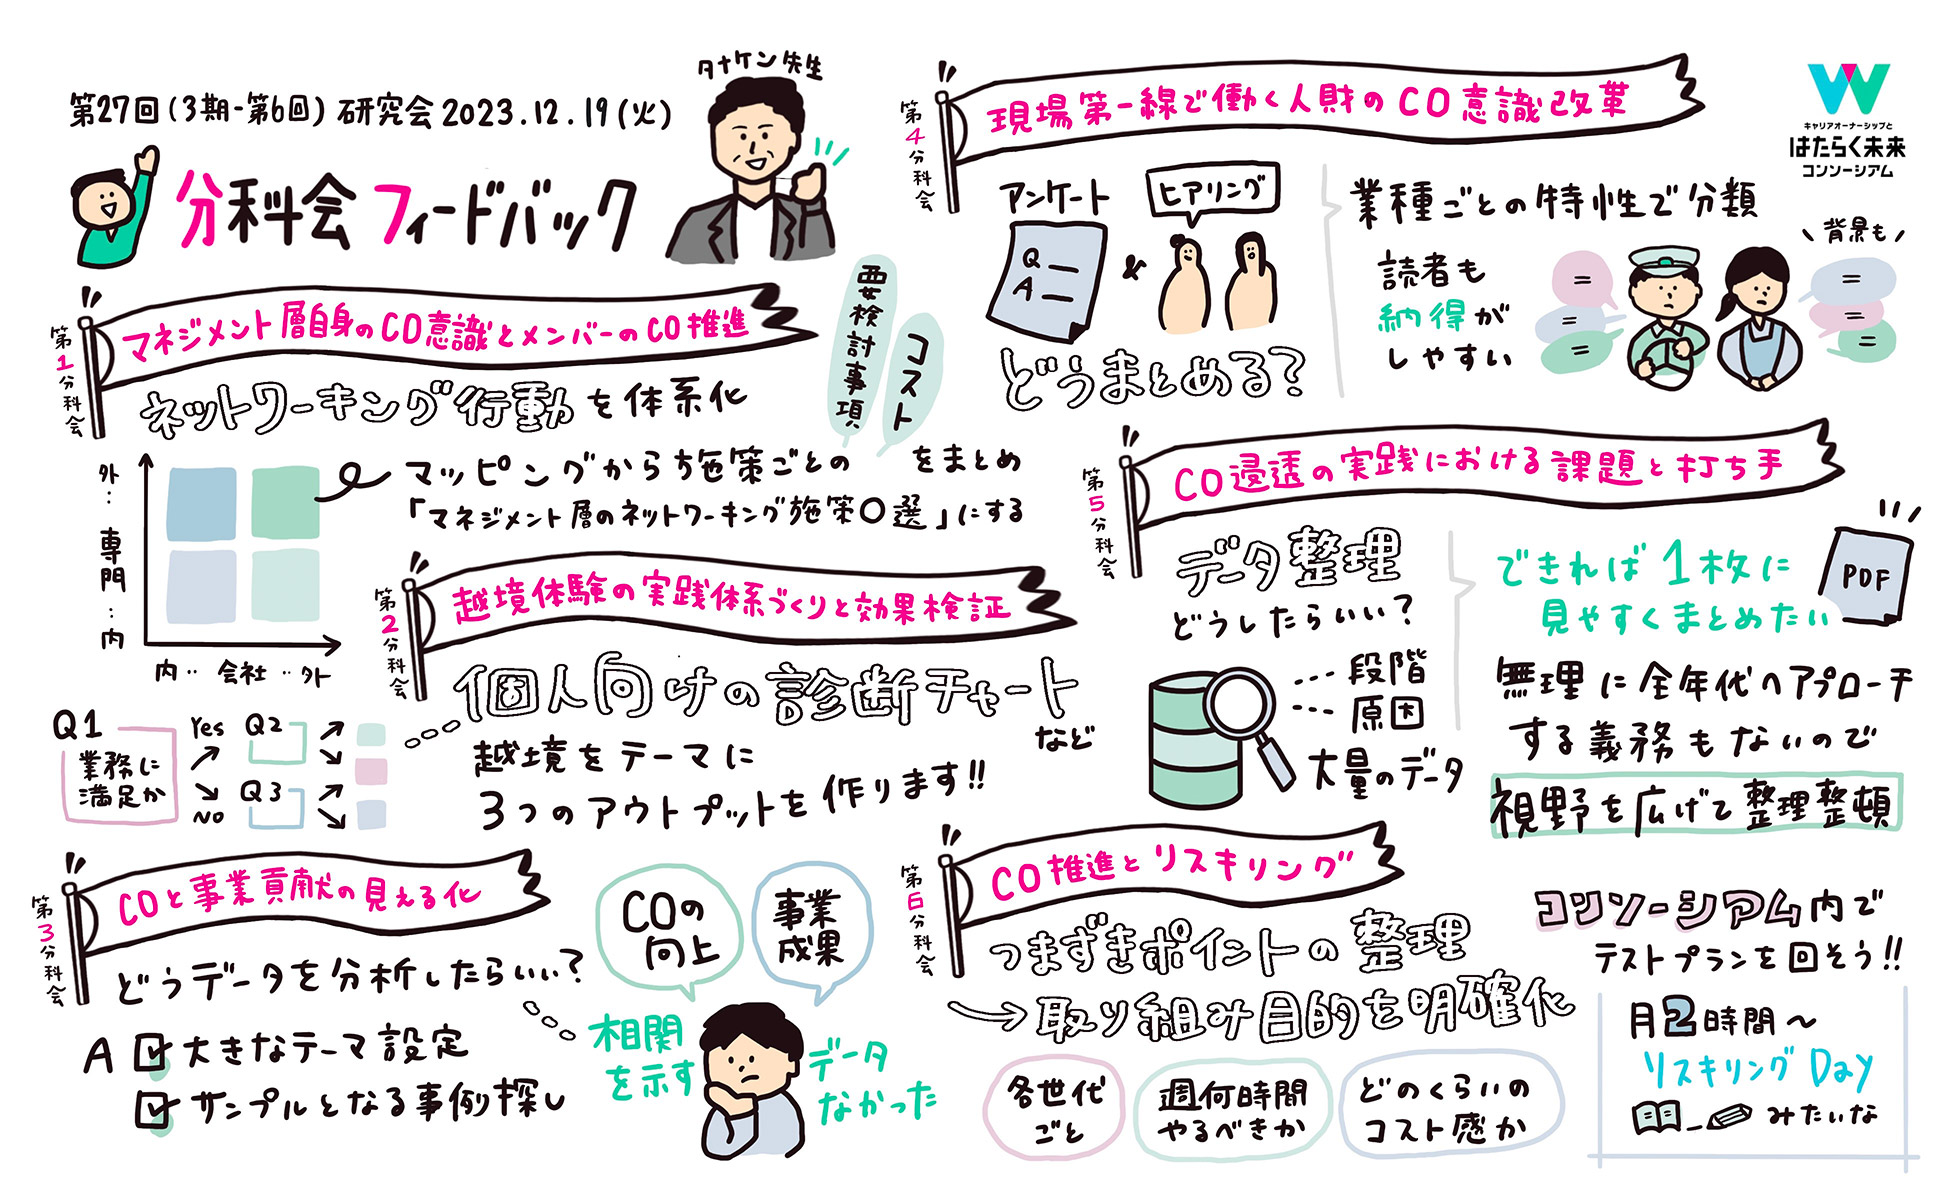 第27回(3期-第6回)研究会2023.12.19(火)
分科会フィードバック
タナケン先生
キャリアオーナーシップと
はたらく未来
コンソーシアム
第1分科会
マネジメント層自身のCO意識とメンバーのCO推進
ネットワーキング行動を体系化
要検討事項
コスト
マッピングから施策ごとの
をまとめ
「マネジメント層のネットワーキング施策〇選」にする
外‥専門‥内
内‥会社‥外
第2分科会
越境体験の実践体系づくりと効果検証
個人向けの診断チャート
など
越境をテーマに
3つのアウトプットを作ります!!
Q1
業務に
満足か
Yes
Q2
NO
Q3
第3分科会
COと事業貢献の見える化
どうデータを分析したらいい?
A
大きなテーマ設定
サンプルとなる事例探し
COの
向上
事業
成果
相関
を示す
データ
なかった
第4分科会
現場第一線で働く人財のCO意識改革
アンケート
Q
A
&
ヒアリング
どうまとめる?
業種ごとの特性で分類
読者も
納得が
しやすい
\背景も/
第5分科会
CO浸透の実践における課題と打ち手
データ整理
どうしたらいい?
…段階
…原因
大量のデータ
できれば1枚に
見やすくまとめたい
PDF
無理に全年代へアプローチ
する義務もないので
視野を広げて整理整頓
第6分科会
CO推進とリスキリング
つまずきポイントの整理
→取り組み目的を明確化
各世代
ごと
週何時間
やるべきか
どのくらいの
コスト感か
コンソーシアム内で
テストプランを回そう!!
月2時間～
リスキリングDay
みたいな